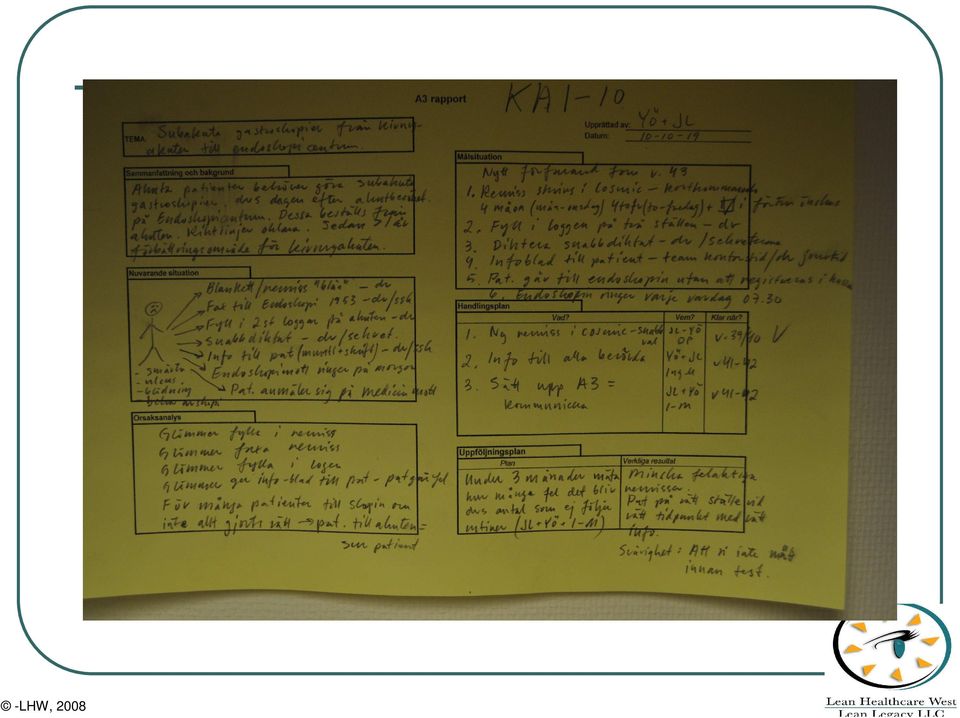 A3 rapport
KA1-10
Upprättad av: YÖ + JL
Datum: 10-10-19
TEMA Subakuta gastroskopier från kirurg-
akuten till endoskopicentrum.
Sammanfattning och bakgrund
Akuta patienter behöver göra subakuta
gastroskopier, dvs dagen efter akutbesöket.
på Endoskopicentrum. Dessa beställs från
akuten. Riktlinjer oklara. Sedan år
förbättringsområde för kirurgakuten.
Nuvarande situation
Blankett/remiss "blå" - dr
Fax till Endoskopi 1953 - dr/ssk
Fyll i 2 st loggar på akuten - dr
Snabbdiktat - dr/sekret.
Info till pat (muntl + skriftl) - dr/ssk
Endoskopimott ringer på morgon
Pat. anmäler sig på medicin mott
- smärta
- ulcus
- blödning
Orsaksanalys
Glömmer fylla i remiss
Glömmer faxa remiss
Glömmer fylla i loggen
Glömmer ge info-blad till pat - pat går fel
För många patienter till skopin om
inte allt gjorts rätt → pat. till akuten =
sur patient
Målsituation
Nytt förfarande from v. 43
1. Remiss skrivs i Cosmic - kortkommando
4 måon (mån-onsdag) 4tofr (to-fredag) +
2. Fyll i loggen på två ställen - dr
3. Diktera snabbdiktat - dr / sekreterare
4. Infoblad till patient - team
5. Pat. går till endoskopin utan att registreras i
6. Endoskopin ringer varje vardag 07.30
Handlingsplan
Vad? Vem? Klar när?
1. Ny remiss i cosmic - snabb JL - YÖ v-39/40 V
val OP
2. Info till alla berörda YÖ + JL v41-42
3. Sätt upp A3 = JL + YÖ v41-42
kommunicera I-M
Uppföljningsplan
Plan Verkliga resultat
Under 3 månader mäta Minska felaktiga
hur många fel det blir remisser.
dvs antal som ej följer Pat på rätt ställe vid
rutiner (JL + YÖ + I-M) rätt tidpunkt med rätt
info.
Svårighet: Att vi inte mätt
innan test.
© -LHW, 2008
Lean Healthcare West
Lean Legacy LLC